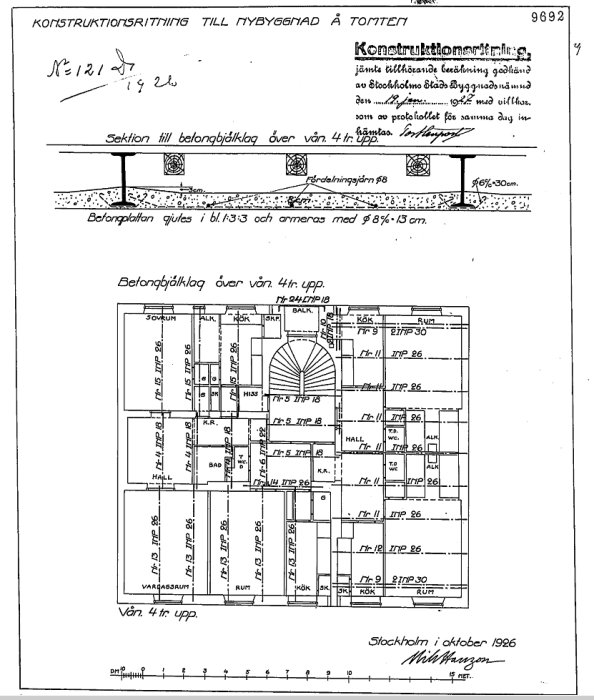 KONSTRUKTIONSRITNING TILL NYBYGGNAD Å TOMTEN
9692
No 121 D
1926
Konstruktionsritning,
jämte tillhörande beräkning godkänd
av Stockholms Stads Byggnadsnämnd
den 19 jan. 1927 med villkor,
som av protokollet för samma dag in-
hämtas.
Sektion till betongbjälklag över vån. 4 tr. upp.
Fördelningsjärn φ8
φ 6‰=30cm.
3cm.
Betongplattan gjutes i bl. 1:3:3 och armeras med φ 8‰ = 13 cm.
Betongbjälklag över vån. 4 tr. upp.
Nr 24 INP 18
SOVRUM
ALK.
KÖK
SKP.
BALK.
KÖK
RUM
Nr 9 2 INP 30
Nr 11 INP 26
Nr 11 INP 26
Nr 15 INP 26
Nr 15 INP 26
Nr 15 INP 26
G
G
G
SK
HISS
Nr 5 INP 18
Nr 11 INP 26
K.R.
Nr 5 INP 18
HALL
T.D.
WC.
ALK.
Nr 4 INP 18
Nr 4 INP 18
Nr 6 INP 22
Nr 5 INP 18
Nr 11 INP 26
BAD
K.K.
T.D
WC
ALK
HALL
Nr 14 INP 26
Nr 11 INP 26
G
Nr 11 INP 26
Nr 13 INP 26
Nr 13 INP 26
Nr 13 INP 26
Nr 13 INP 26
Nr 12 INP 26
VARDAGSRUM
RUM
KÖK
SK.
SK.
KÖK
Nr 9 2 INP 30
RUM
Vån. 4 tr. upp.
Stockholm i oktober 1926
DM 10 0 1 2 3 4 5 6 7 8 9 10 15 MET.